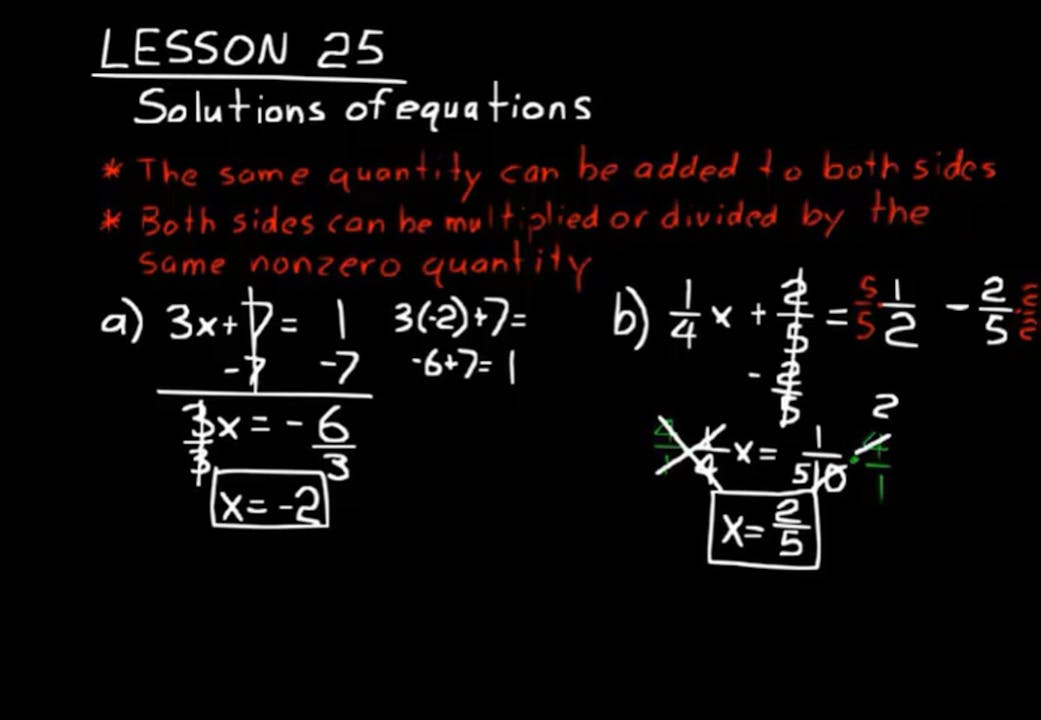 LESSON 25
Solutions of equations
* The same quantity can be added to both sides
* Both sides can be multiplied or divided by the
same nonzero quantity
a) 3x+7= 1
-7 -7
3/3 x = - 6/3
x= -2
3(-2)+7=
-6+7= 1
b) 1/4 x + 2/5 = 5/5 1/2 - 2/5 · 2/2
- 2/5
4/1 1/4 x = 1/10 · 4/1
5 2
x= 2/5